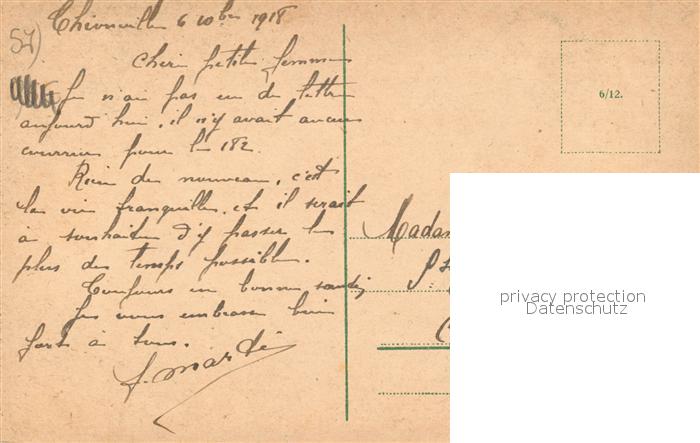 57)
Thionville 6 10bre 1918
Cherie petite femme
Je n'ai pas eu de lettre
aujourd'hui, il n'y avait aucun
courrier pour le 182.
Rien de nouveau, c'est
la vie tranquille, et il serait
à souhaiter d'y passer le
plus de temps possible.
Toujours en bonne santé,
Je vous embrasse bien
fort à tous.
f. Mardi
6/12.
Madam
privacy protection
Datenschutz